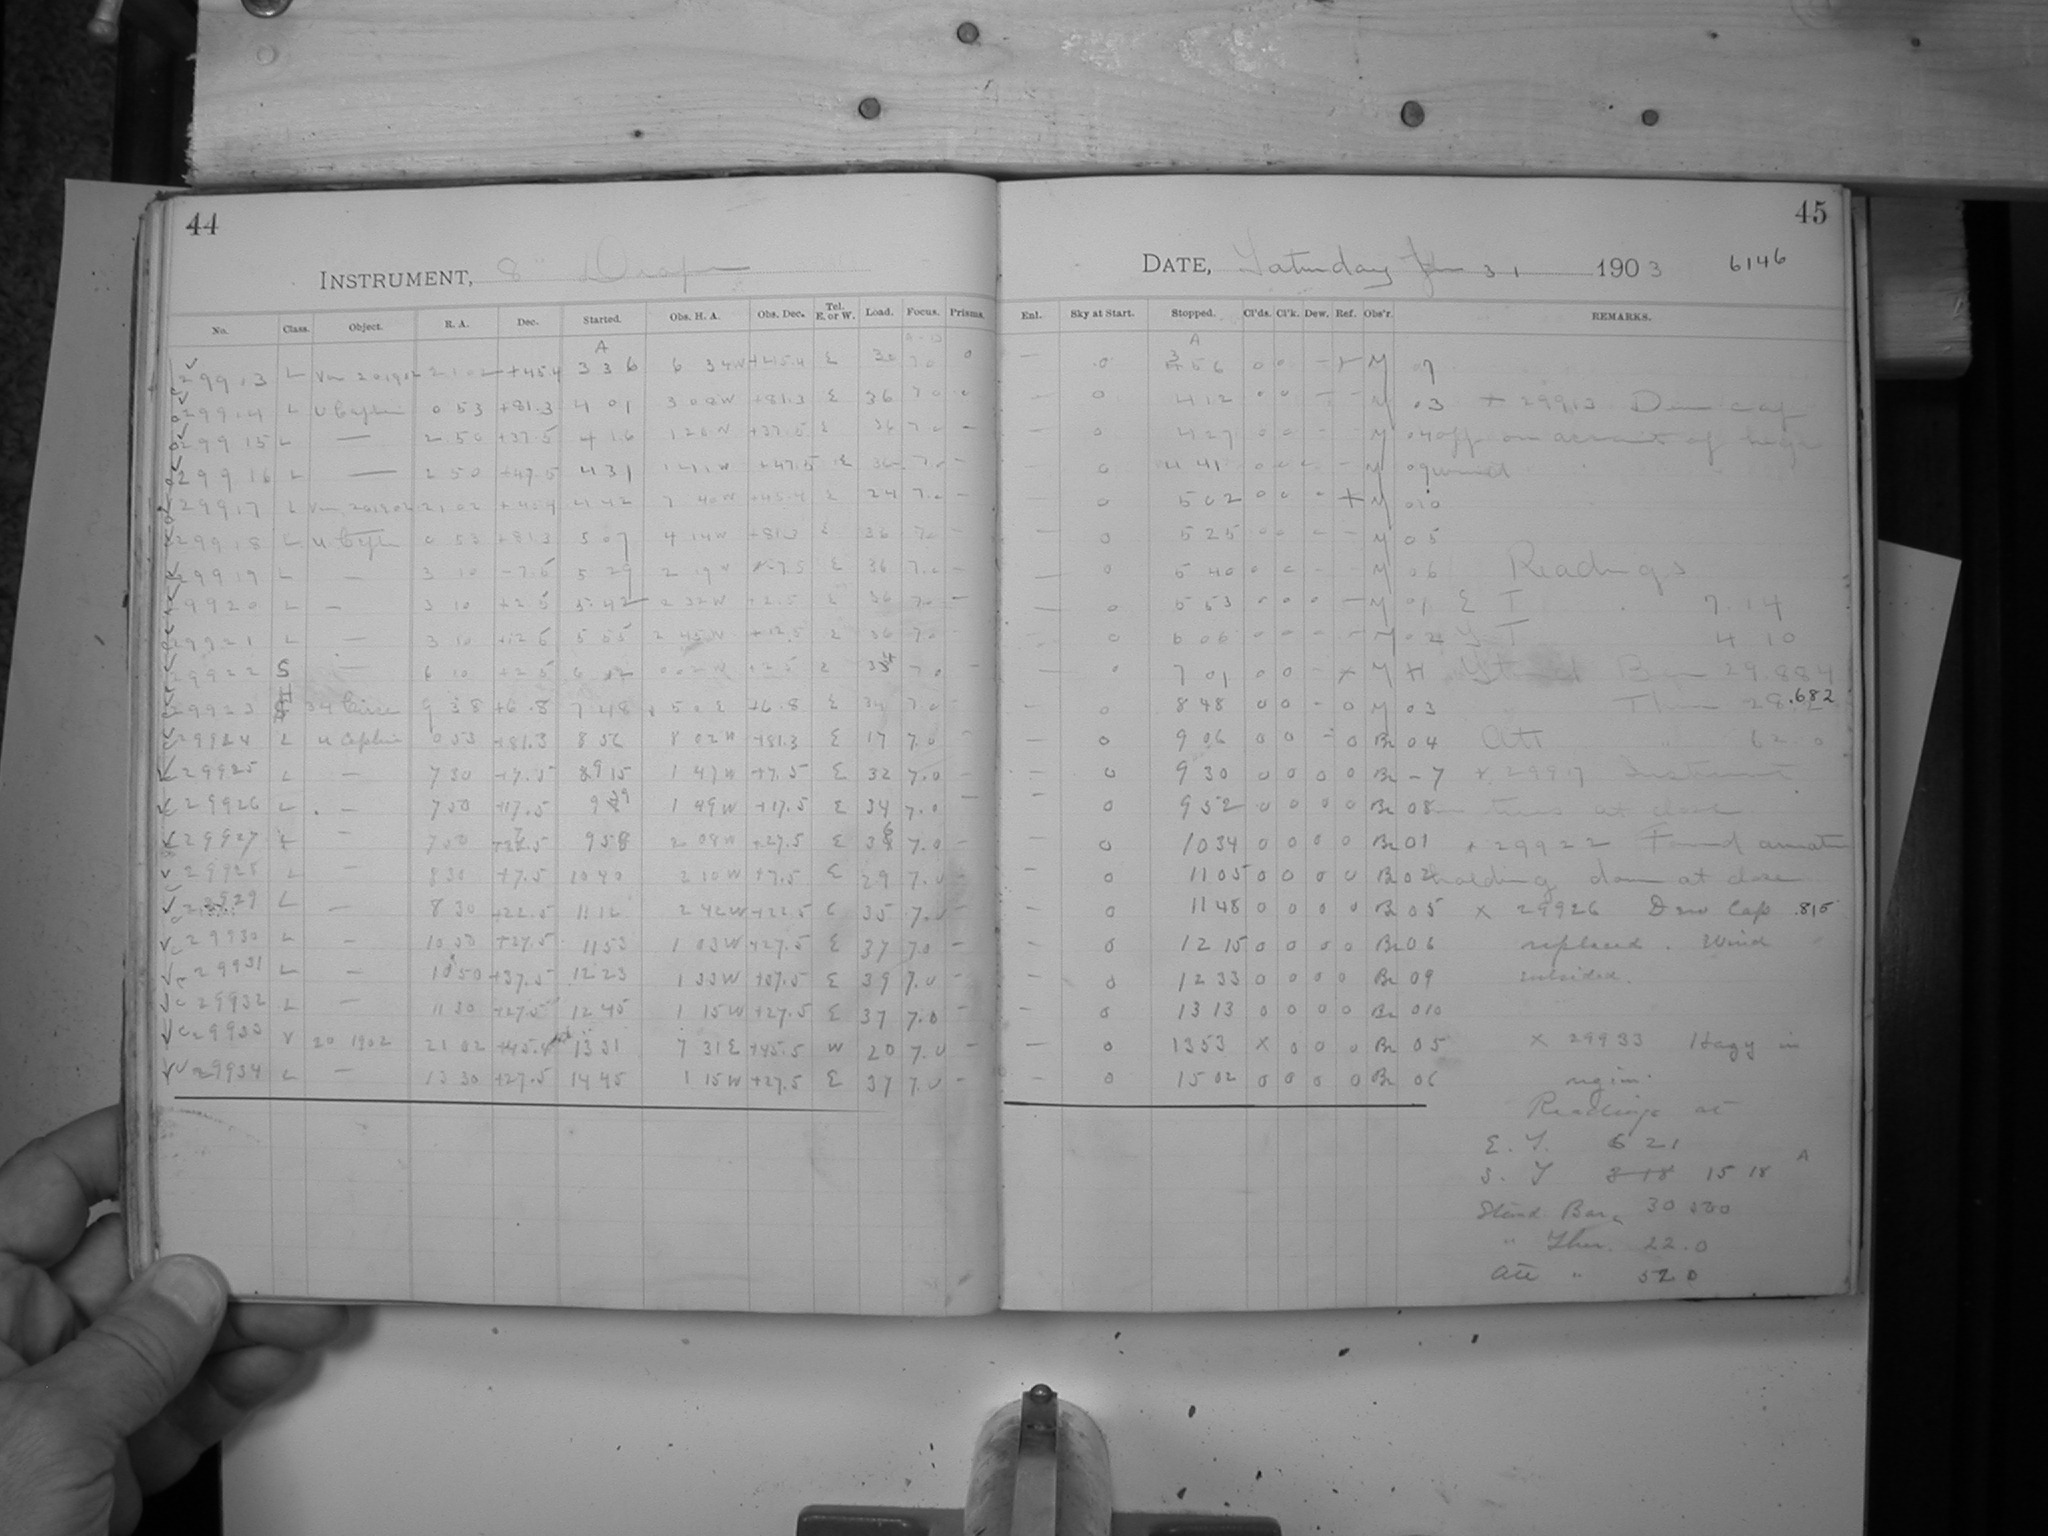 44
45
INSTRUMENT, 8" Draper
DATE, Saturday Jan 31 1903 6146
No. Class. Object. R. A. Dec. Started. Obs. H. A. Obs. Dec. Tel. E. or W. Load. Focus. Prisms. Enl. Sky at Start. Stopped. Cl'ds. Cl'k. Dew. Ref. Obs'r. REMARKS.
29913 L 21 02 +45.4 3 36 6 34W +45.4 E 30 7.0 0 — 0 3 56 0 0 — M 07
29914 L U Cephei 0 53 +81.3 4 01 3 08W +81.3 E 36 7.0 — 0 4 12 0 0 — — M 03 × 29913 Dew cap
29915 L — 2 50 +37.5 4 16 1 26W +37.5 E 36 7.0 — — 0 4 27 0 0 — — M 04 off on account of high
29916 L — 2 50 +47.5 4 31 1 41W +47.5 E 36 7.0 — — 0 4 41 0 0 — M 09 wind
29917 L 21 02 +45.4 4 42 7 40W +45.4 E 24 7.0 — — 0 5 02 0 0 0 + M 010
29918 L U Cephei 0 53 +81.3 5 07 4 14W +81.3 E 36 7.0 — — 0 5 25 0 0 — — M 05
29919 L — 3 10 -7.5 5 29 2 19W -7.5 E 36 7.0 — — 0 5 40 0 0 — — M 06 Readings
29920 L — 3 10 +2.5 5 42 2 32W +2.5 E 36 7.0 — — 0 5 53 0 0 0 — M 01 E T 7.14
29921 L — 3 10 +12.5 5 55 2 45W +12.5 E 36 7.0 — — 0 6 06 0 0 0 — M 02 S T 4 10
29922 S — 6 10 +2.5 6 12 0 02W +2.5 E 7.0 — — 0 7 01 0 0 — × M H Stand Bar 29.884
29923 9 38 +6.8 7 48 50 E +6.8 E 34 7.0 — — 0 8 48 0 0 — 0 M 03 " Ther 28. .682
29924 L U Cephei 0 53 +81.3 8 56 8 02W +81.3 E 17 7.0 — — 0 9 06 0 0 — 0 Br 04 Att " 62.0
29925 L — 7 30 +7.5 9 15 1 47W +7.5 E 32 7.0 — — 0 9 30 0 0 0 0 Br -7 × 29917 Instrument
29926 L — 7 50 +17.5 9 39 1 49W +17.5 E 34 7.0 — — 0 9 52 0 0 0 0 Br 08 in trees at close
29927 L — 7 50 +27.5 9 58 2 08W +27.5 E 36 7.0 — — 0 10 34 0 0 0 0 Br 01 × 29922 Found armature
29928 L — 8 30 +7.5 10 40 2 10W +7.5 E 29 7.0 — — 0 11 05 0 0 0 0 Br 02 holding down at close
29929 L — 8 30 +22.5 11 12 2 42W +22.5 E 35 7.0 — — 0 11 48 0 0 0 0 Br 05 × 29926 Dew Cap .815
29930 L — 10 50 +27.5 11 53 1 03W +27.5 E 37 7.0 — — 0 12 15 0 0 0 0 Br 06 replaced. Wind
29931 L — 10 50 +37.5 12 23 1 33W +37.5 E 39 7.0 — — 0 12 33 0 0 0 0 Br 09 subsided.
29932 L — 11 30 +27.5 12 45 1 15W +27.5 E 37 7.0 — — 0 13 13 0 0 0 0 Br 010
29933 V 20 1902 21 02 +45.4 13 31 7 31E +45.5 W 20 7.0 — — 0 13 53 × 0 0 0 Br 05 × 29933 Hazy in
29934 L — 13 30 +27.5 14 45 1 15W +27.5 E 37 7.0 — — 0 15 02 0 0 0 0 Br 06 region.
Readings at
E. T. 6 21
S. T 15 18 A
Stand Bar. 30 500
" Ther. 22.0
Att " 52 0